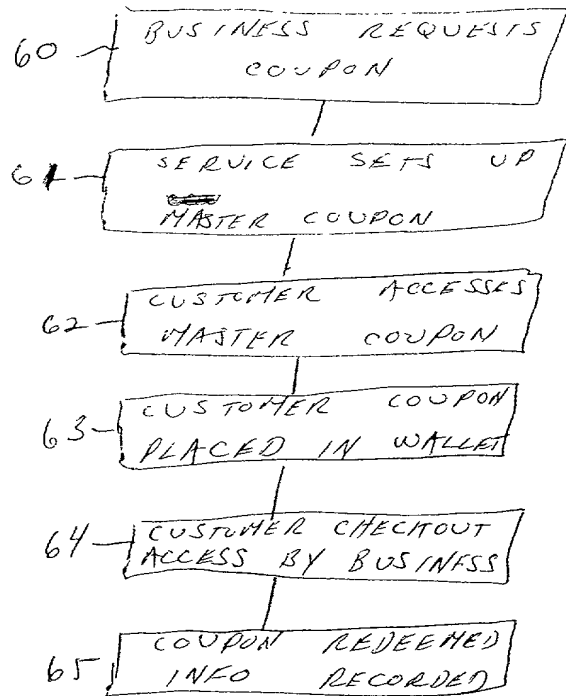 60
BUSINESS REQUESTS
COUPON
61
SERVICE SETS UP
MASTER COUPON
62
CUSTOMER ACCESSES
MASTER COUPON
63
CUSTOMER COUPON
PLACED IN WALLET
64
CUSTOMER CHECKOUT
ACCESS BY BUSINESS
65
COUPON REDEEMED
INFO RECORDED